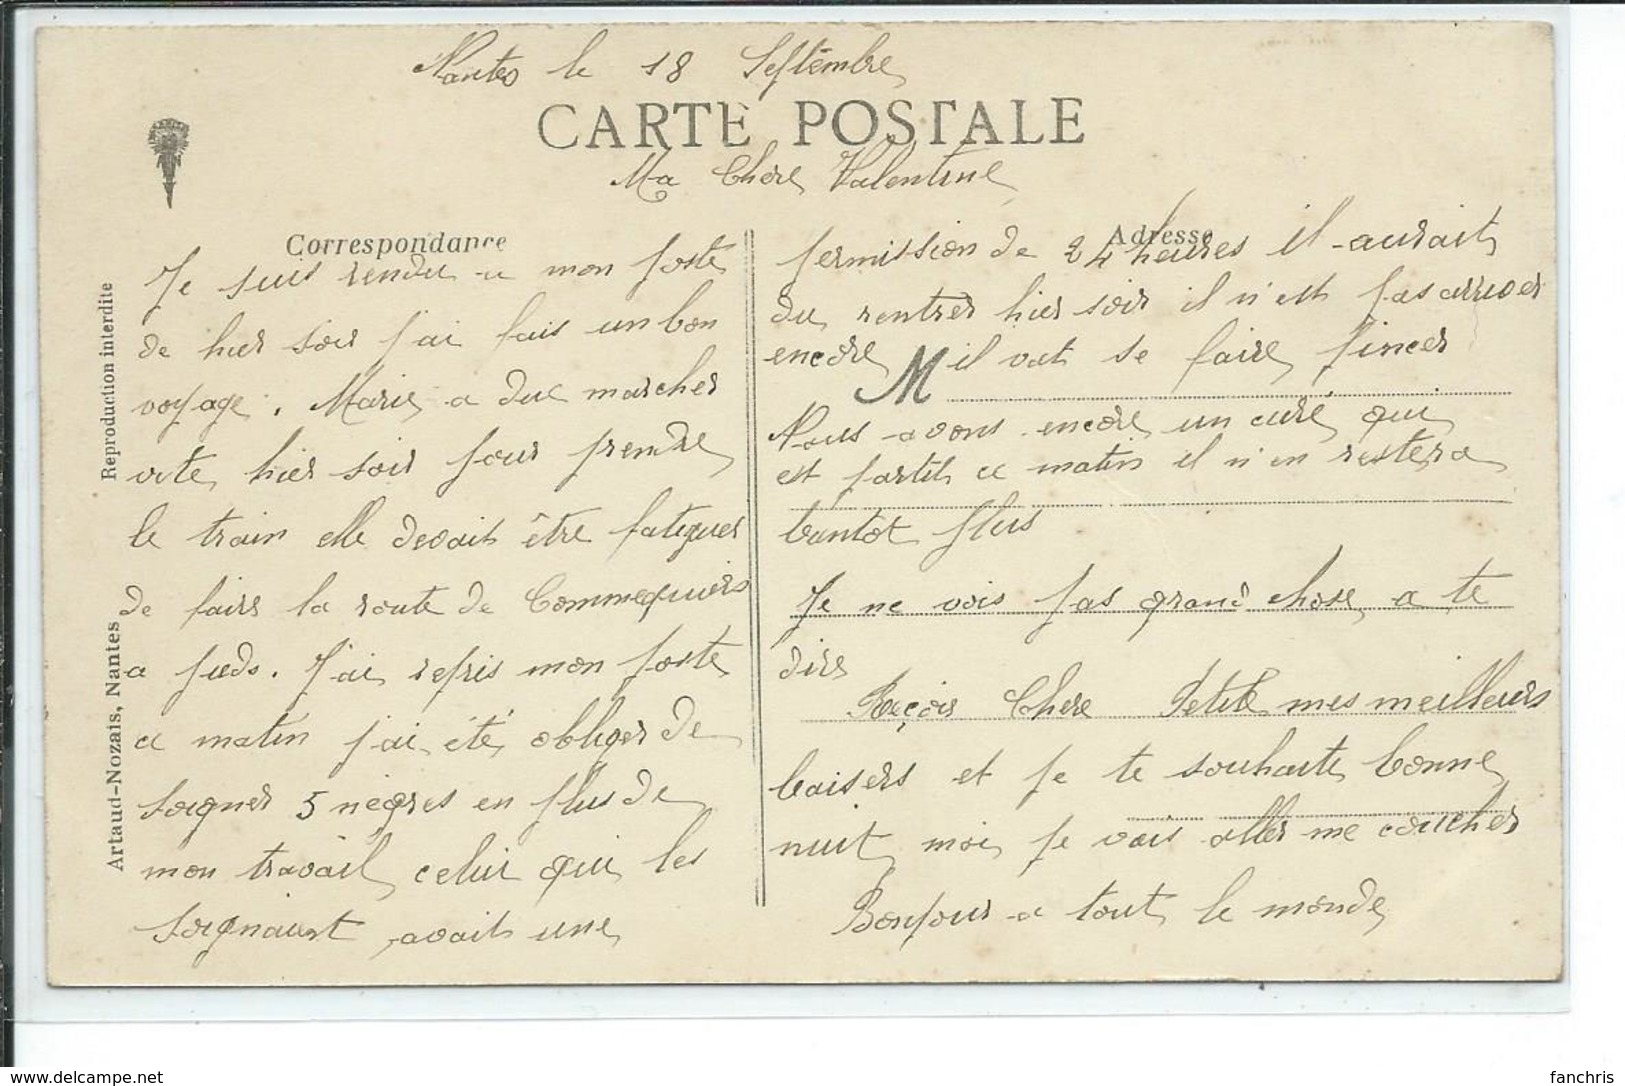 Nantes le 18 Septembre
CARTE POSTALE
Ma Chere Valentine
Correspondance
Je suis rendu a mon poste
de hier soir j'ai fais un bon
voyage. Marie a due marcher
vite hier soir pour prendre
le train elle devait être fatiguer
de faire la route de Commequiers
a pieds. J'ai repris mon poste
ce matin j'ai été obliger de
soigner 5 nègres en plus de
mon travail celui qui les
soignaint avait une
Adresse
permission de 24 heures il aurait
du rentrer hier soir il n'est pas arriver
encore il vat se faire pincer
M
Nous avons encore un curé qui
est partit ce matin il n'en restera
bientot plus
Je ne vois pas grand chose a te
dire
Reçois Chere Petite mes meilleurs
baisers et je te souhaite bonne
nuit moi je vais aller me coucher
Bonjour a tout le monde
Reproduction interdite
Artaud-Nozais, Nantes
www.delcampe.net
fanchris